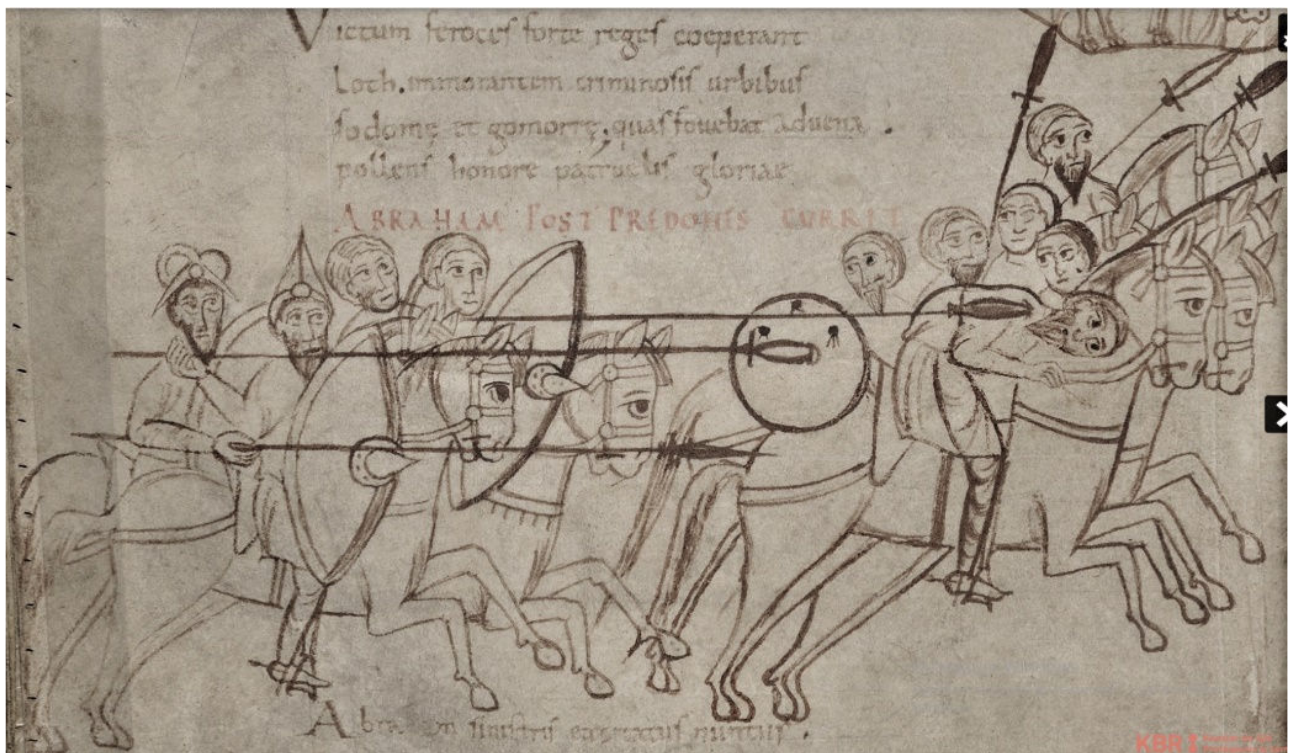 Victum feroces forte reges coeperant
Loth. immorantem criminosis urbibus
sodomę et gomorrę, quas fovebat advena.
pollens honore patruelis gloriae
ABRAHAM POST PREDONES CURRIT
Abraham sinistris excitatus nuntiis.
KBR